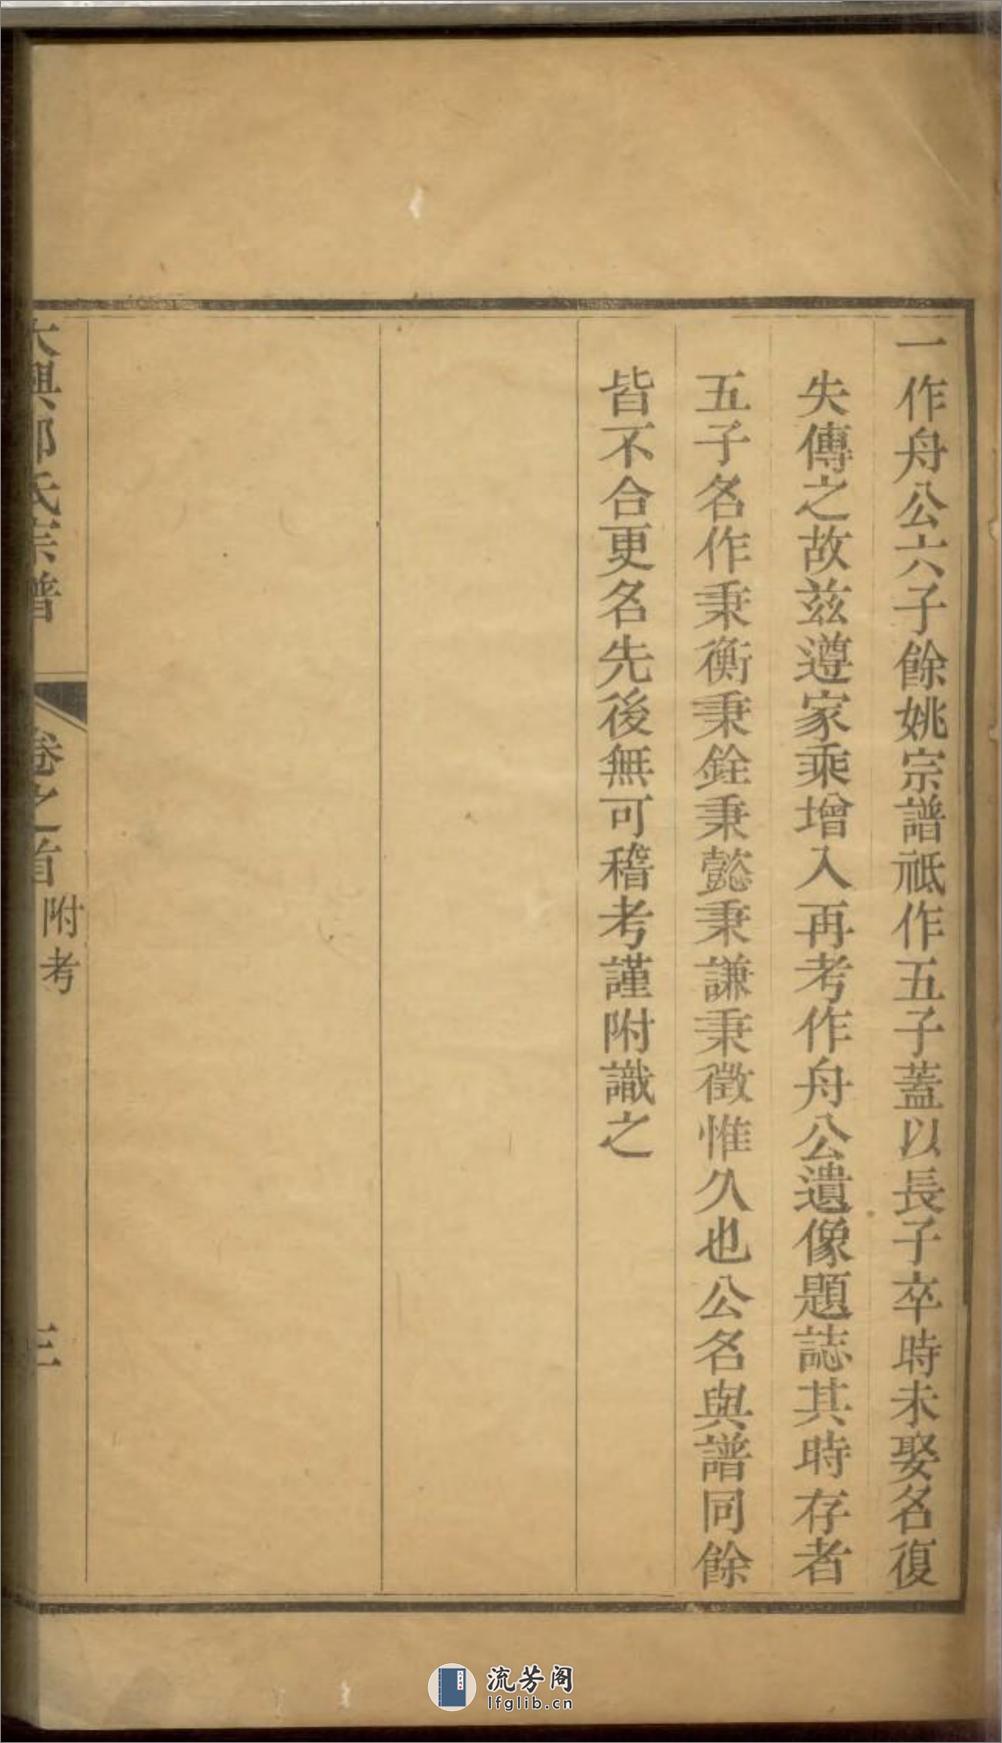 一作舟公六子餘姚宗譜祗作五子蓋以長子卒時未娶名復
失傳之故茲遵家乘增入再考作舟公遺像題誌其時存者
五子名作秉衡秉銓秉懿秉謙秉徵惟久也公名與譜同餘
皆不合更名先後無可稽考謹附識之
大興邵氏宗譜
卷之首
附考
三
流芳阁
lfglib.cn